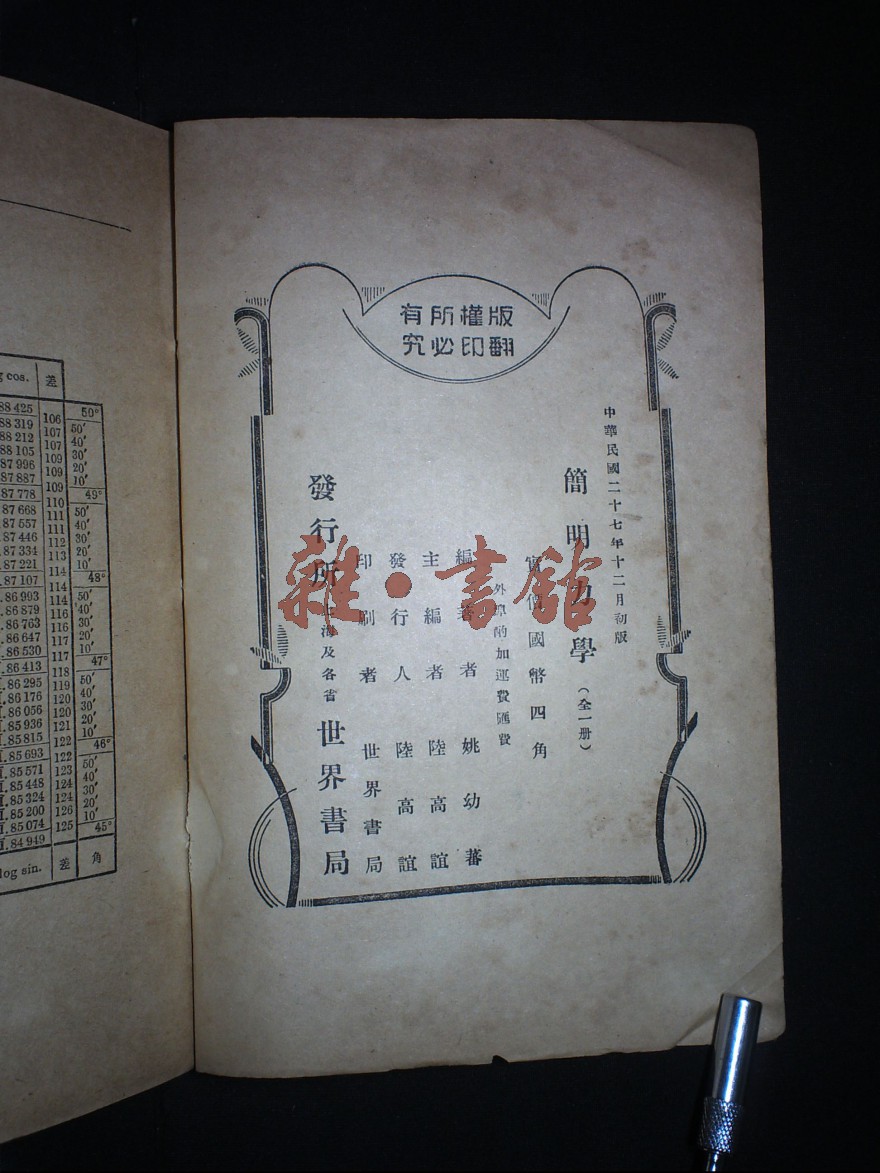 版權所有
翻印必究
中華民國二十七年十二月初版
簡明力學（全一册）
實價國幣四角
外埠酌加運費匯費
編著者 姚幼蕃
主編者 陸高誼
發行人 陸高誼
印刷者 世界書局
發行所 上海及各省 世界書局
雜·書館
g cos. 差
88 425 50°
88 319 106 50′
88 212 107 40′
88 105 107 30′
87 996 109 20′
87 887 109 10′
87 778 109 49°
87 668 110 50′
87 557 111 40′
87 446 111 30′
87 334 112 20′
87 221 113 10′
87 107 114 48°
86 993 114 50′
86 879 114 40′
86 763 116 30′
86 647 116 20′
86 530 117 10′
86 413 117 47°
86 295 118 50′
86 176 119 40′
86 056 120 30′
85 936 120 20′
85 815 121 10′
85 693 122 46°
85 571 122 50′
85 448 123 40′
85 324 124 30′
85 200 124 20′
85 074 126 10′
84 949 125 45°
log sin. 差 角